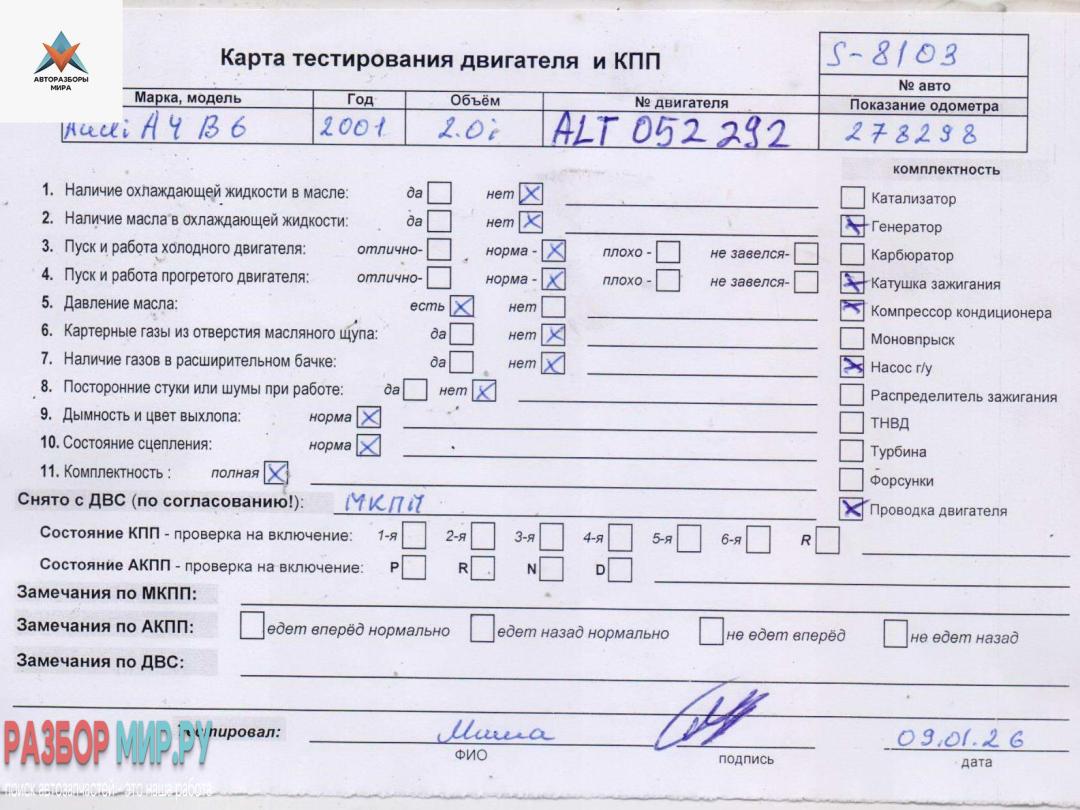 АВТОРАЗБОРЫ
МИРА
Карта тестирования двигателя и КПП
S-8103
№ авто
Марка, модель Год Объём № двигателя Показание одометра
Audi A4 B6 2001 2.0i ALT 052 292 278298
комплектность
1. Наличие охлаждающей жидкости в масле: да нет
2. Наличие масла в охлаждающей жидкости: да нет
3. Пуск и работа холодного двигателя: отлично- норма - плохо - не завелся-
4. Пуск и работа прогретого двигателя: отлично- норма - плохо - не завелся-
5. Давление масла: есть нет
6. Картерные газы из отверстия масляного щупа: да нет
7. Наличие газов в расширительном бачке: да нет
8. Посторонние стуки или шумы при работе: да нет
9. Дымность и цвет выхлопа: норма
10. Состояние сцепления: норма
11. Комплектность : полная
Катализатор
Генератор
Карбюратор
Катушка зажигания
Компрессор кондиционера
Моновпрыск
Насос г/у
Распределитель зажигания
ТНВД
Турбина
Форсунки
Проводка двигателя
Снято с ДВС (по согласованию!): МКПП
Состояние КПП - проверка на включение: 1-я 2-я 3-я 4-я 5-я 6-я R
Состояние АКПП - проверка на включение: P R N D
Замечания по МКПП:
Замечания по АКПП: едет вперёд нормально едет назад нормально не едет вперёд не едет назад
Замечания по ДВС:
Тестировал: Миша 09.01.26
ФИО подпись дата
РАЗБОРМИР.РУ
поиск автозапчастей - это наша работа